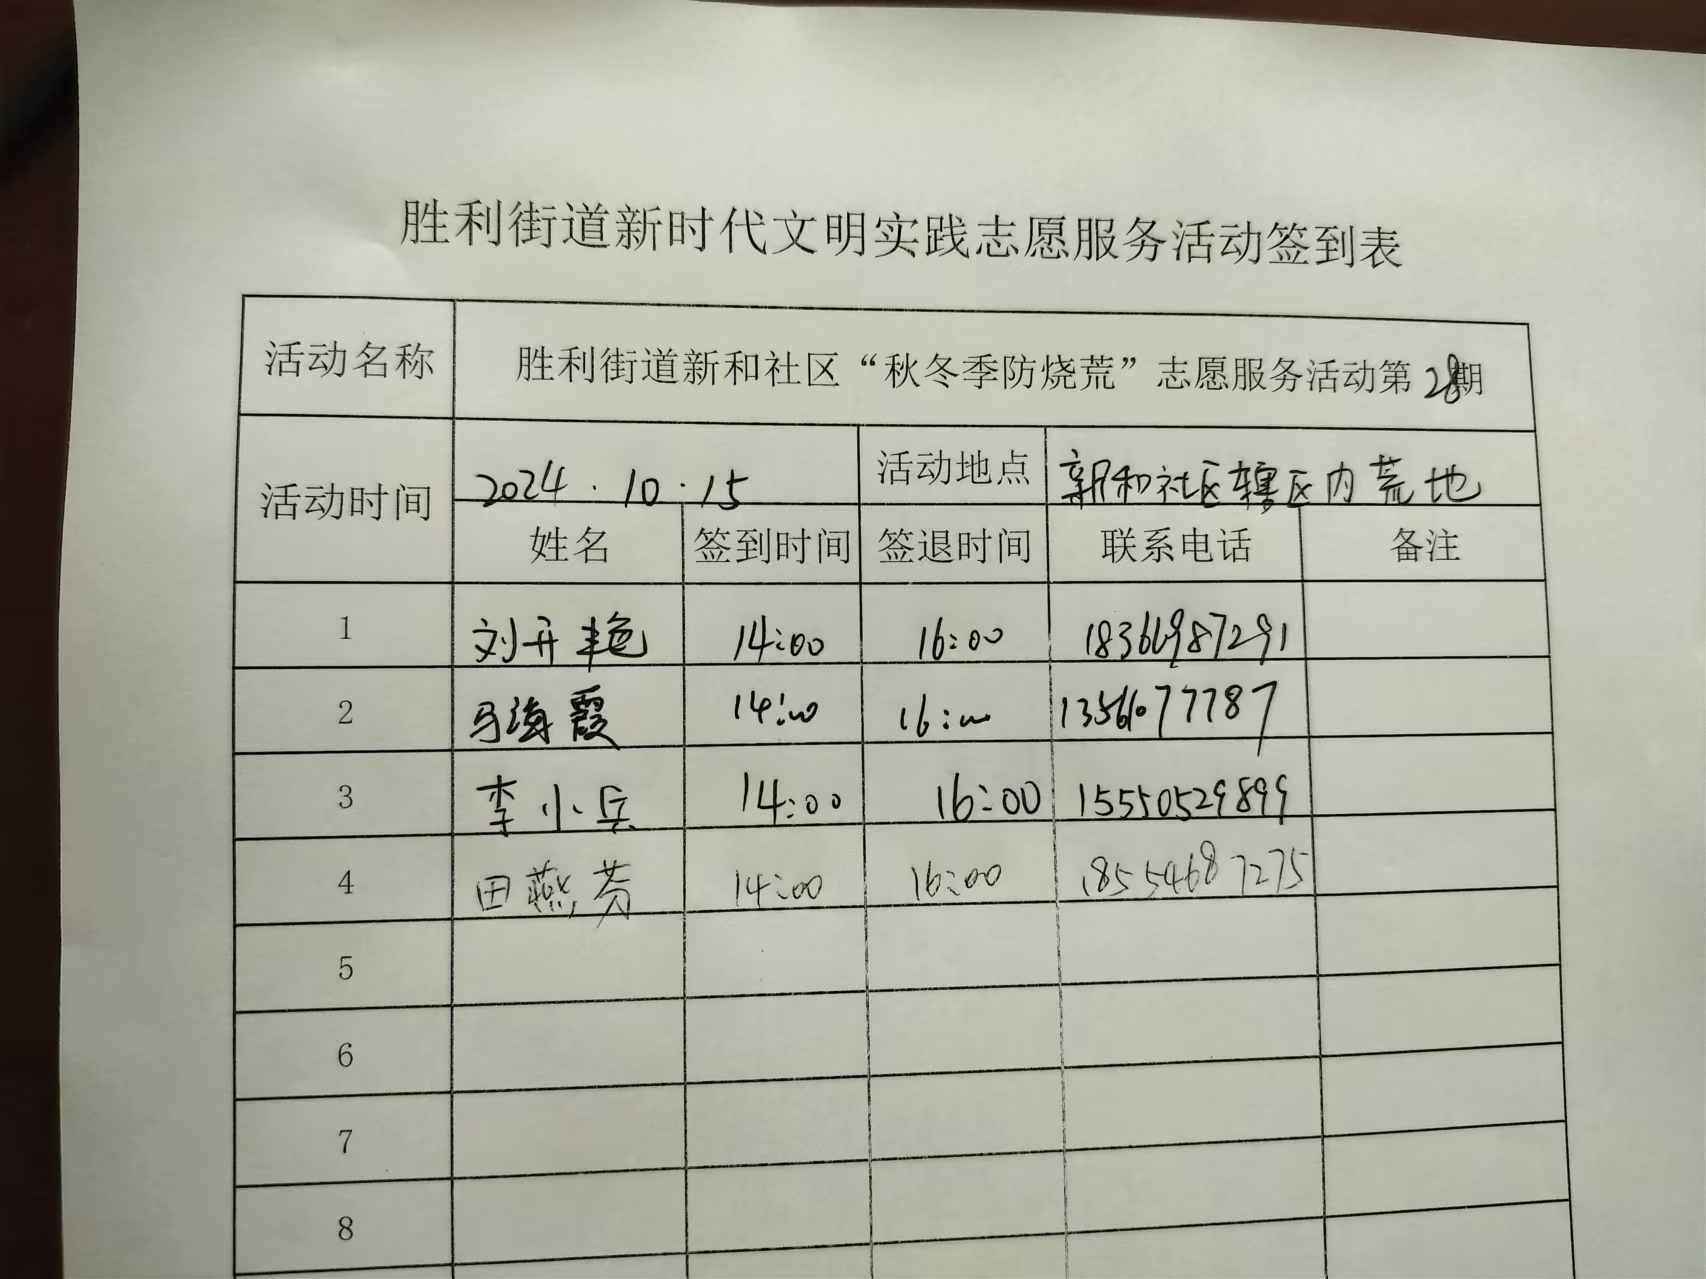 胜利街道新时代文明实践志愿服务活动签到表
活动名称 胜利街道新和社区“秋冬季防烧荒”志愿服务活动第28期
活动时间 2024.10.15 活动地点 新和社区辖区内荒地
姓名 签到时间 签退时间 联系电话 备注
1 刘开艳 14:00 16:00 18366987291
2 马海霞 14:00 16:00 13561077787
3 李小兵 14:00 16:00 15550529899
4 田燕芬 14:00 16:00 18554687275
5
6
7
8